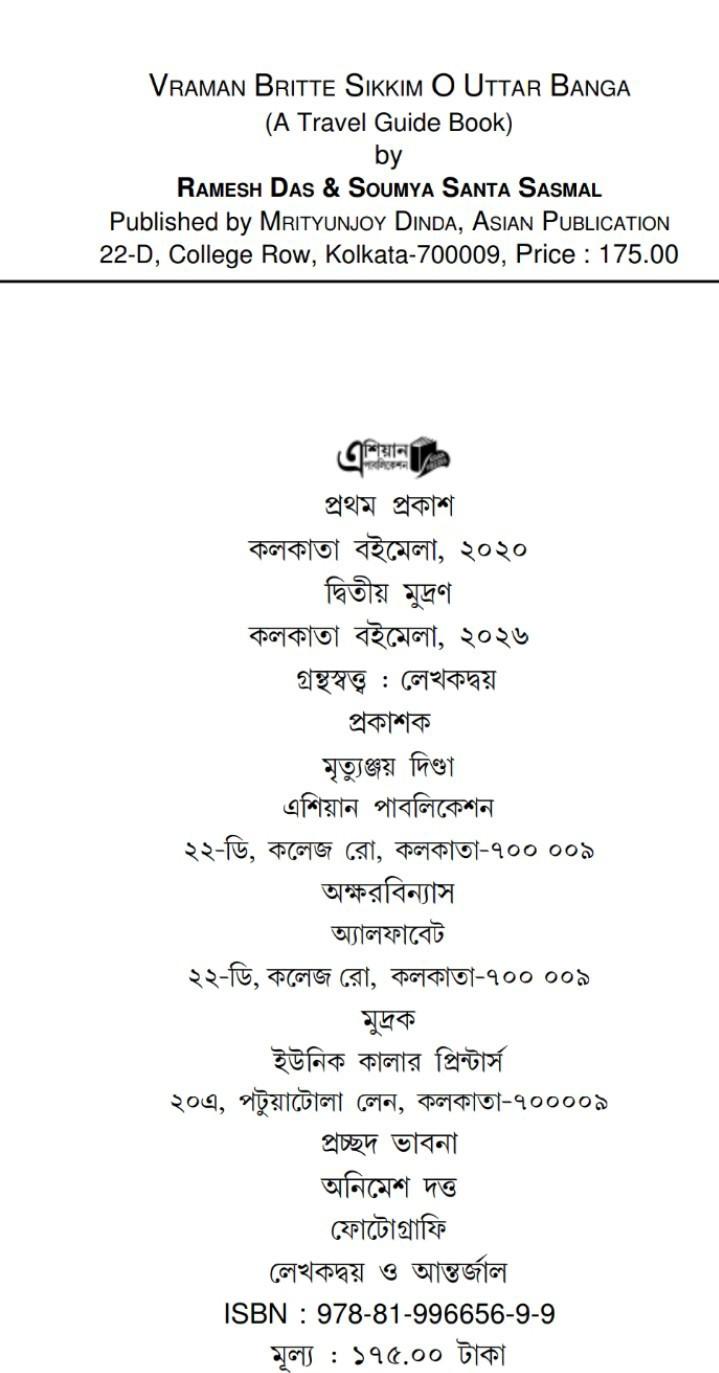 VRAMAN BRITTE SIKKIM O UTTAR BANGA
(A Travel Guide Book)
by
RAMESH DAS & SOUMYA SANTA SASMAL
Published by MRITYUNJOY DINDA, ASIAN PUBLICATION
22-D, College Row, Kolkata-700009, Price : 175.00
এশিয়ান
পাবলিকেশন
প্রথম প্রকাশ
কলকাতা বইমেলা, ২০২০
দ্বিতীয় মুদ্রণ
কলকাতা বইমেলা, ২০২৬
গ্রন্থস্বত্ত্ব : লেখকদ্বয়
প্রকাশক
মৃত্যুঞ্জয় দিণ্ডা
এশিয়ান পাবলিকেশন
২২-ডি, কলেজ রো, কলকাতা-৭০০ ০০৯
অক্ষরবিন্যাস
অ্যালফাবেট
২২-ডি, কলেজ রো, কলকাতা-৭০০ ০০৯
মুদ্রক
ইউনিক কালার প্রিন্টার্স
২০এ, পটুয়াটোলা লেন, কলকাতা-৭০০০০৯
প্রচ্ছদ ভাবনা
অনিমেশ দত্ত
ফোটোগ্রাফি
লেখকদ্বয় ও আন্তর্জাল
ISBN : 978-81-996656-9-9
মূল্য : ১৭৫.০০ টাকা